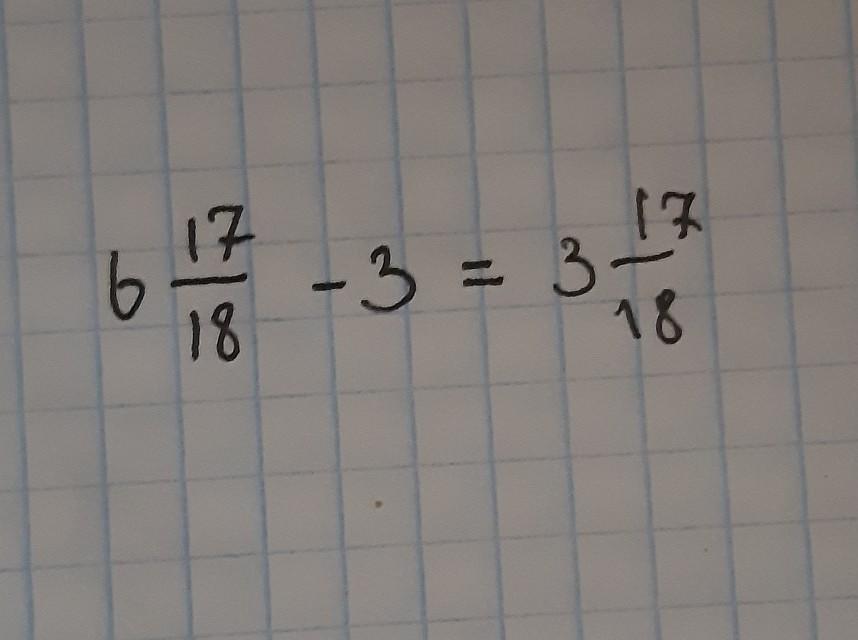 6 17/18 - 3 = 3 17/18